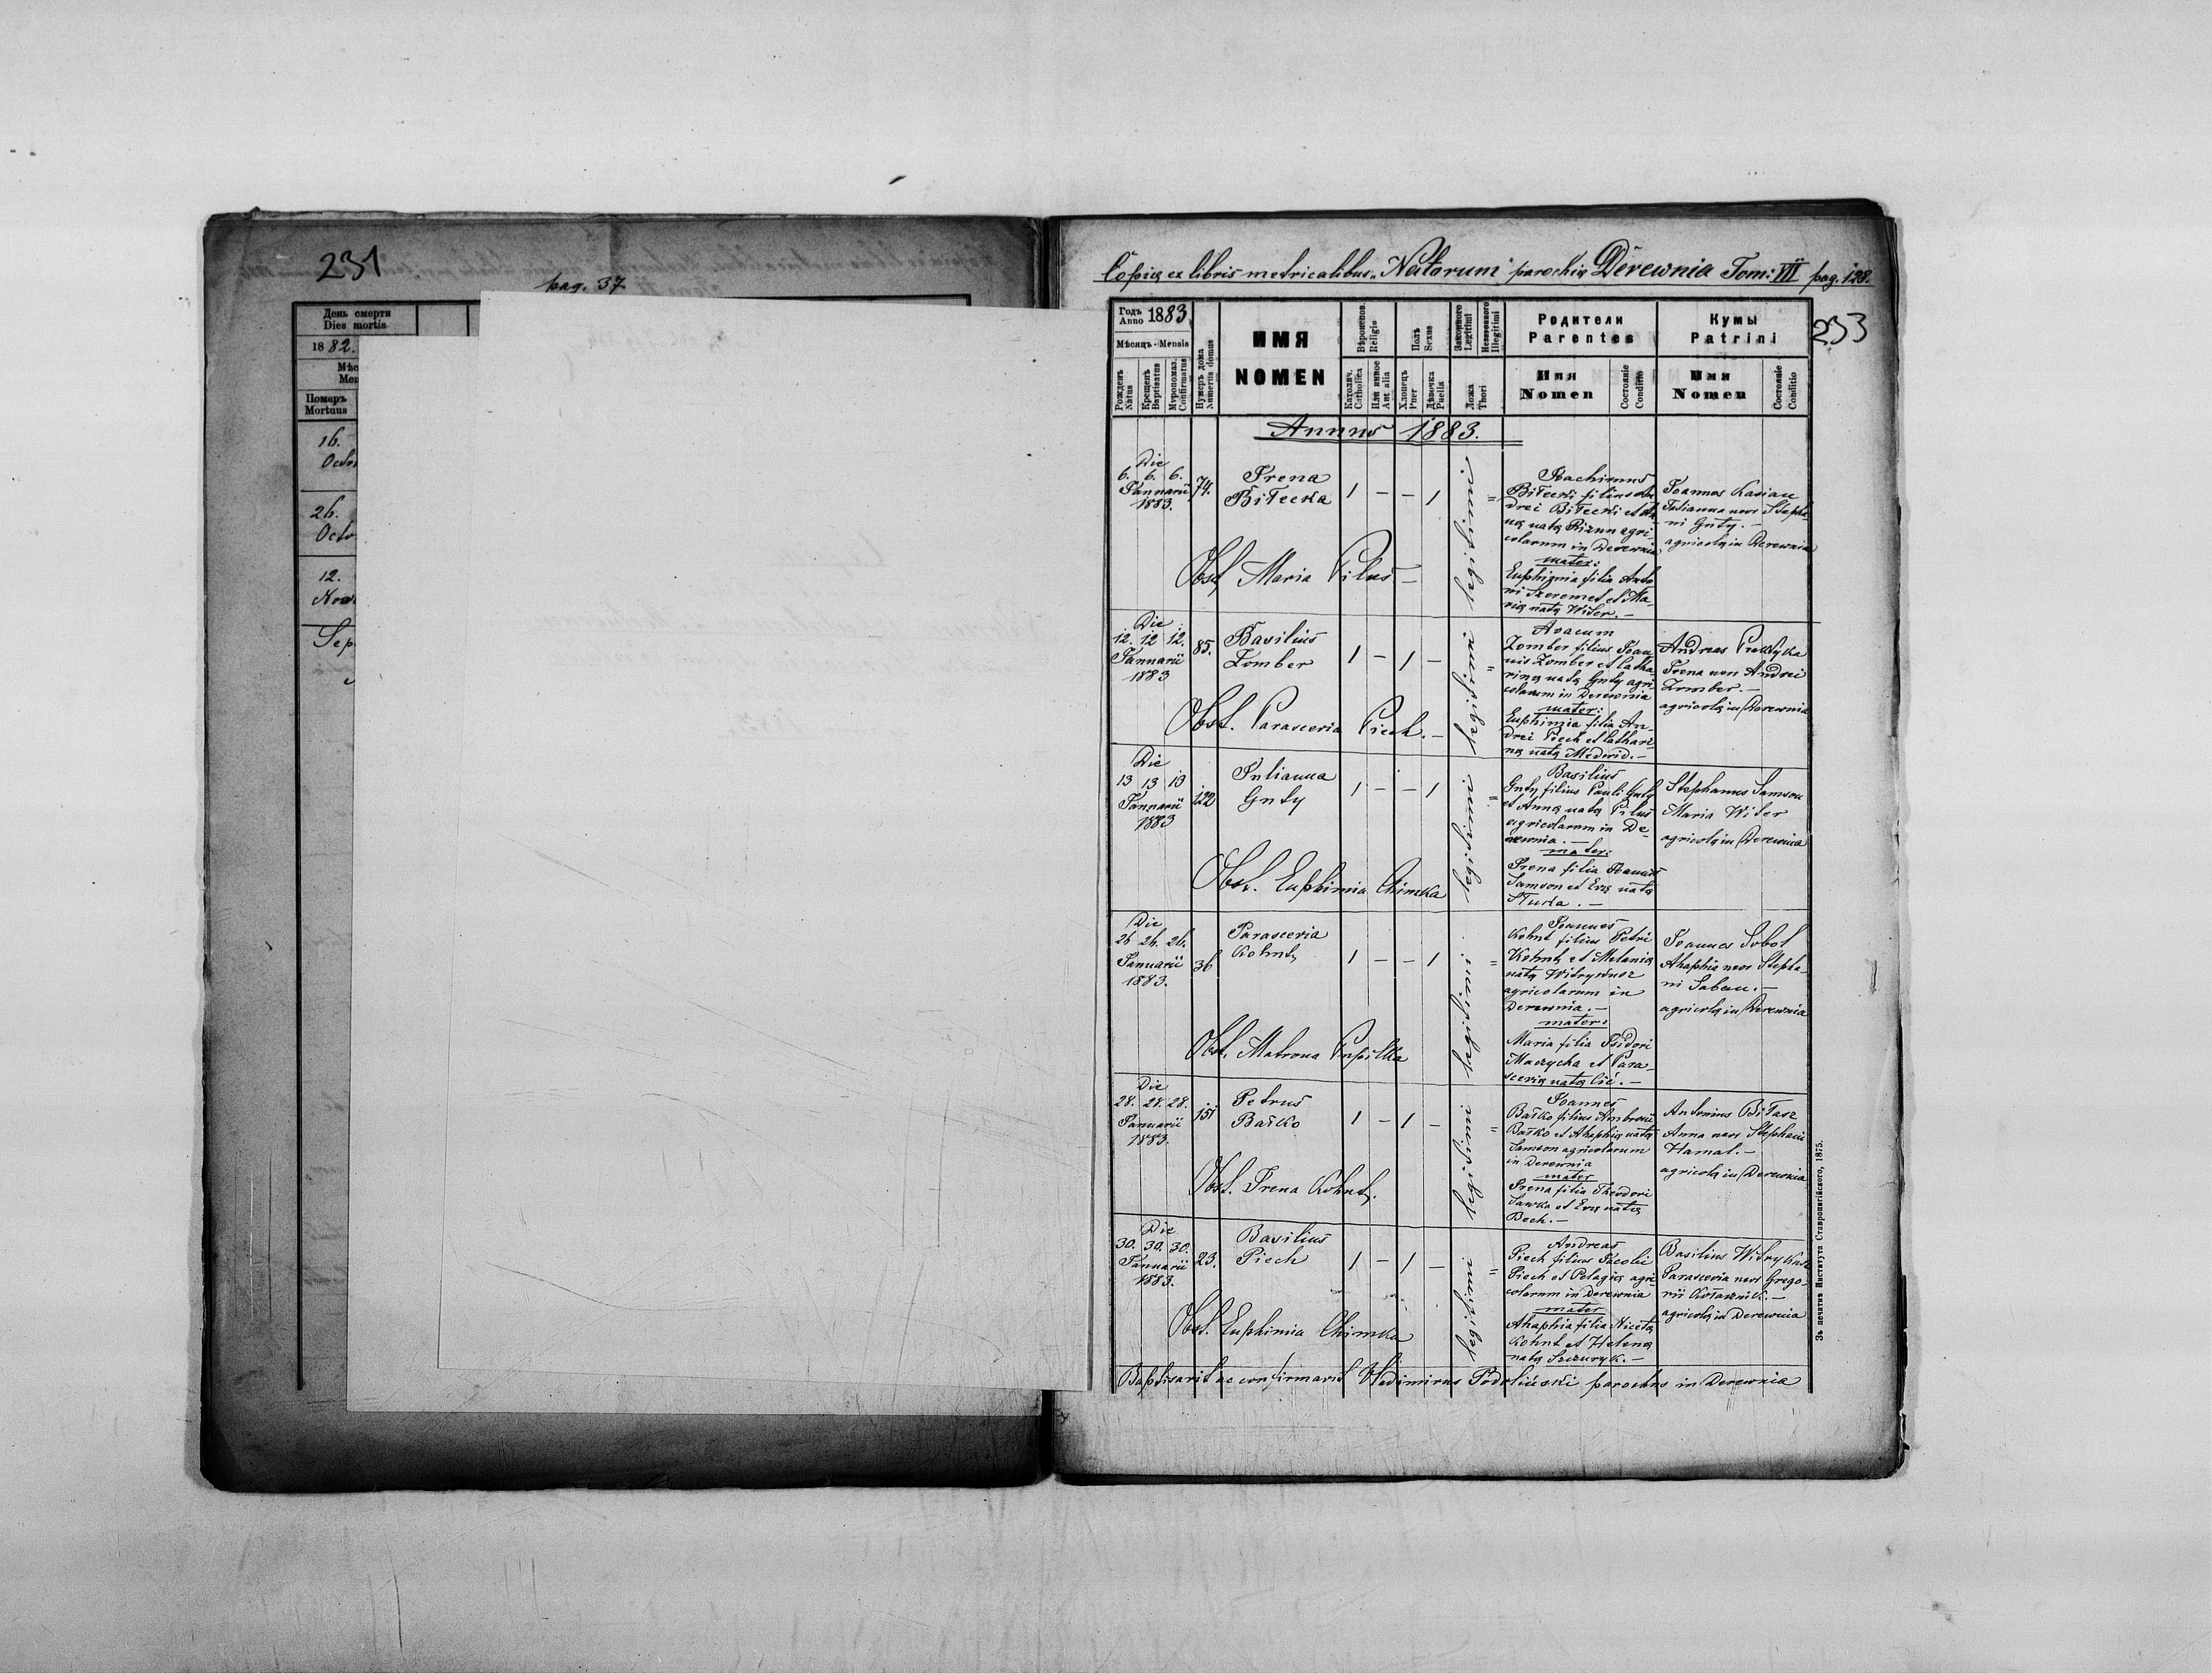 231
pag. 37
День смерти
Dies mortis
1882.
Померъ
Mortuus
16.
26.
12.
Sep
Copia ex libris metricalibus „Natorum" parochię Derewnia Tom: VII pag. 128.
233
Годъ Anno 1883
Мѣсяцъ - Mensis
Рожденъ Natus
Крещенъ Baptisatus
Мѵропомаз. Confirmatus
Нумеръ дома Numerus domus
ИМЯ
NOMEN
Вѣроиспов. Religio
Католич. Catholica
Или инное Aut alia
Полъ Sexus
Хлопецъ Puer
Дѣвочка Puella
Законного Legitimi
Незаконного Illegitimi
Ложа Thori
Родители
Parentes
Имя
Nomen
Состояніе Conditio
Кумы
Patrini
Имя
Nomen
Состояніе Conditio
Annus 1883.
Die
6. 6. 6.
Januarii
1883.
74.
Irena
Biłecka
1 – – 1
legitimi
Joachimus
Biłecki filius An
drei Biłecki et An
nę natę Rizun agri-
colarum in Derewnia
mater:
Euphimia filia Anto
ni Szeremet et Ma-
rię natę Witer. –
Joannes Kasian
Julianna uxor Stepha-
ni Gnty. –
agricolę in Derewnia
Obst. Maria Pilus –
Die
12. 12 12.
Januarii
1883
85.
Basilius
Zomber
1 – 1 –
legitimi
Avacum
Zomber filius Joan
nis Zomber et Catha
rinę natę Gnty agri-
colarum in Derewnia
mater:
Euphimia filia An-
drei Piech et Cathari
nę natę Medwid. –
Andreas
Irena uxor Andrei
Zomber. –
agricolę in Derewnia
Obst. Parascevia Piech. –
Die
13 13 13
Januarii
1883
122
Julianna
Gnty
1 – – 1
legitimi
Basilius
Gnty filius Pauli Gnty
et Annę natę Pilus
agricolarum in De-
rewnia. –
mater:
Irena filia Joannis
Samson et Evę natę
Stephanus Samson
Maria Witer
agricolę in Derewnia
Obst. Euphimia Chimka
Die
26 26. 26.
Januarii
1883.
36
Parascevia
Kohnt
1 – – 1
legitimi
Joannes
Kohnt filius Petri
Kohnt et Melanię
natę Witrykusz
agricolarum in
Derewnia. –
mater:
Maria filia Isidori
Maczycha et Para-
scevię natę Cić. –
Joannes Sobol
Ahaphia uxor Stepha-
ni Saban. –
agricolę in Derewnia
Obst. Matrona Pupiłka
Die
28. 28. 28.
Januarii
1883.
151
Petrus
Bařko
1 – 1 –
legitimi
Joannes
Bařko filius Ambrosii
Bařko et Ahaphię natę
Samson agricolarum
in Derewnia
mater
Irena filia Theodori
Sawka et Evę natę
Bech. –
Antonius Biłasz
Anna uxor Stephani
Hamal. –
agricolę in Derewnia
Obst. Irena Kohnt.
Die
30. 30. 30.
Januarii
1883.
23.
Basilius
Piech
1 – 1 –
legitimi
Andreas
Piech filius Jacobi
Piech et Pelagię agri-
colarum in Derewnia
mater
Ahaphia filia Nicetę
Kohnt et Helenę
natę Szczuryk. –
Basilius Witrykusz
Parascevia uxor Grego-
rii Kołacznik. –
agricolę in Derewnia
Obst. Euphimia Chimka
Baptisavit ac confirmavit Wladimirus Podoliński parochus in Derewnia
Зъ печатнѣ Института Ставропигійского, 1875.